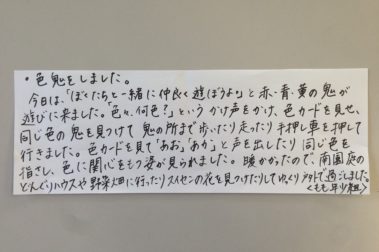 ・色鬼をしました。
今日は、「ぼくたちと一緒に仲良く遊ぼうよ」と赤・青・黄の鬼が
遊びに来ました。「色々、何色？」というかけ声をかけ、色カードを見せ、
同じ色の鬼を見つけて鬼の所まで歩いたり走ったり手押し車を押して
行きました。色カードを見て「あお」「あか」と声を出したり同じ色を
指さし、色に関心をもつ姿が見られました。暖かかったので、南園庭の
どんぐりハウスや野菜畑に行ったりスイセンの花を見つけたりしてゆっくり戸外で過ごしました。
〈もも年少組〉